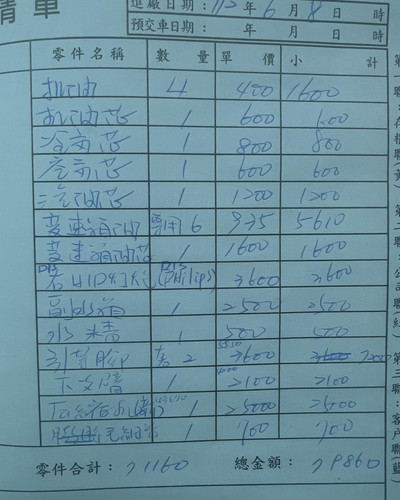 清單
進廠日期:112年6月8日 時
預交車日期: 年 月 日 時
零件名稱 數量 單價 小計
机油 4 400 1600
机油芯 1 600 600
冷氣芯 1 800 800
空氣芯 1 600 600
汽油芯 1 1200 1200
變速箱油 專用6 935 5610
變速箱油芯 1 1600 1600
D1S HID灯泡 (philips) 3600 3600
副水箱 1 2500 2500
水精 1 500 500
引擎腳 2 3600 7200
下支臂 1 2100 2100
1 25000 25000
1 700 700
零件合計: 總金額: